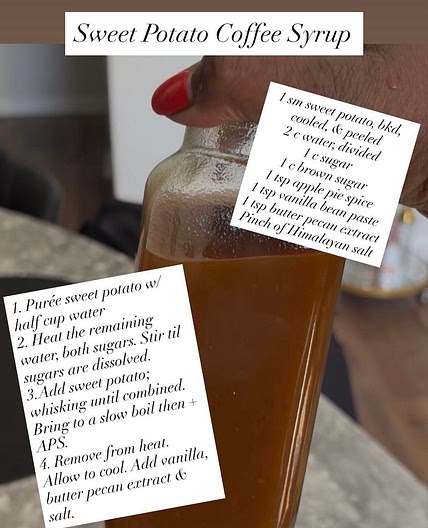 Sweet Potato Coffee Syrup
1 sm sweet potato, bkd,
cooled, & peeled
2 c water, divided
1 c sugar
1 c brown sugar
1 tsp apple pie spice
1 tsp vanilla bean paste
1 tsp butter pecan extract
Pinch of Himalayan salt
1. Purée sweet potato w/
half cup water
2. Heat the remaining
water, both sugars. Stir til
sugars are dissolved.
3.Add sweet potato;
whisking until combined.
Bring to a slow boil then +
APS.
4. Remove from heat.
Allow to cool. Add vanilla,
butter pecan extract &
salt.